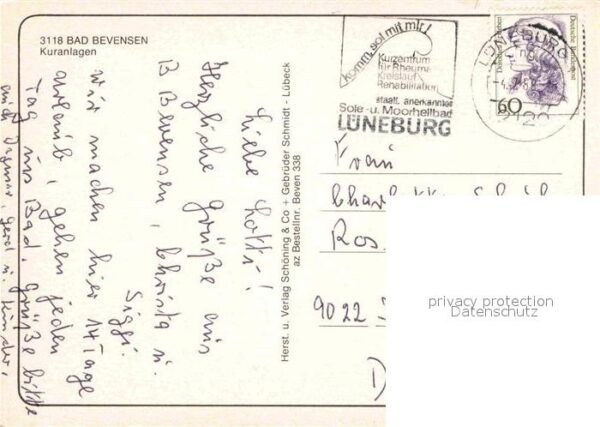 3118 BAD BEVENSEN
Kuranlagen
Liebe Lotti!
Herzliche Grüße aus
B Bevensen, Christa u.
Siggi.
wir machen hier 14 Tage
Urlaub, gehen jeden
Tag ins Bad. Grüße bitte
auch Dagmar, Gerd u. Kinder,
Herst. u. Verlag Schöning & Co + Gebrüder Schmidt - Lübeck
az Bestellnr. Beven 338
komm, sol mit mir!
Kurzentrum
für Rheuma
Kreislauf
Rehabilitation
staatl. anerkanntes
Sole- u. Moorheilbad
LÜNEBURG
LÜNEBURG
2120
Deutsche Bundespost
60
Frau
Ros
9022
D
privacy protection
Datenschutz